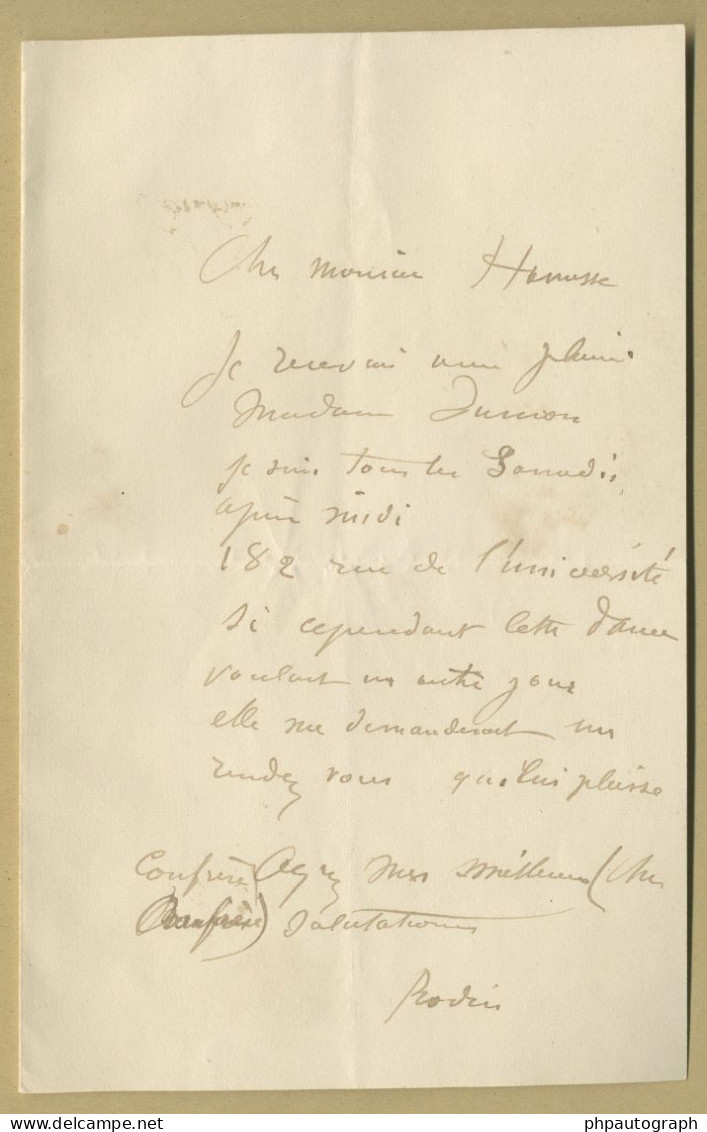 Cher monsieur
Je recevrai avec plaisir
Madame
je suis tous les Samedis
après midi
182 rue de l'université
Si cependant cette dame
voulait un autre jour
elle me demanderait un
rendez vous qui lui plaise
Confrère) Agréez mes meilleures (cher
Confrère) salutations
Rodin
delcampe.net
phpautograph